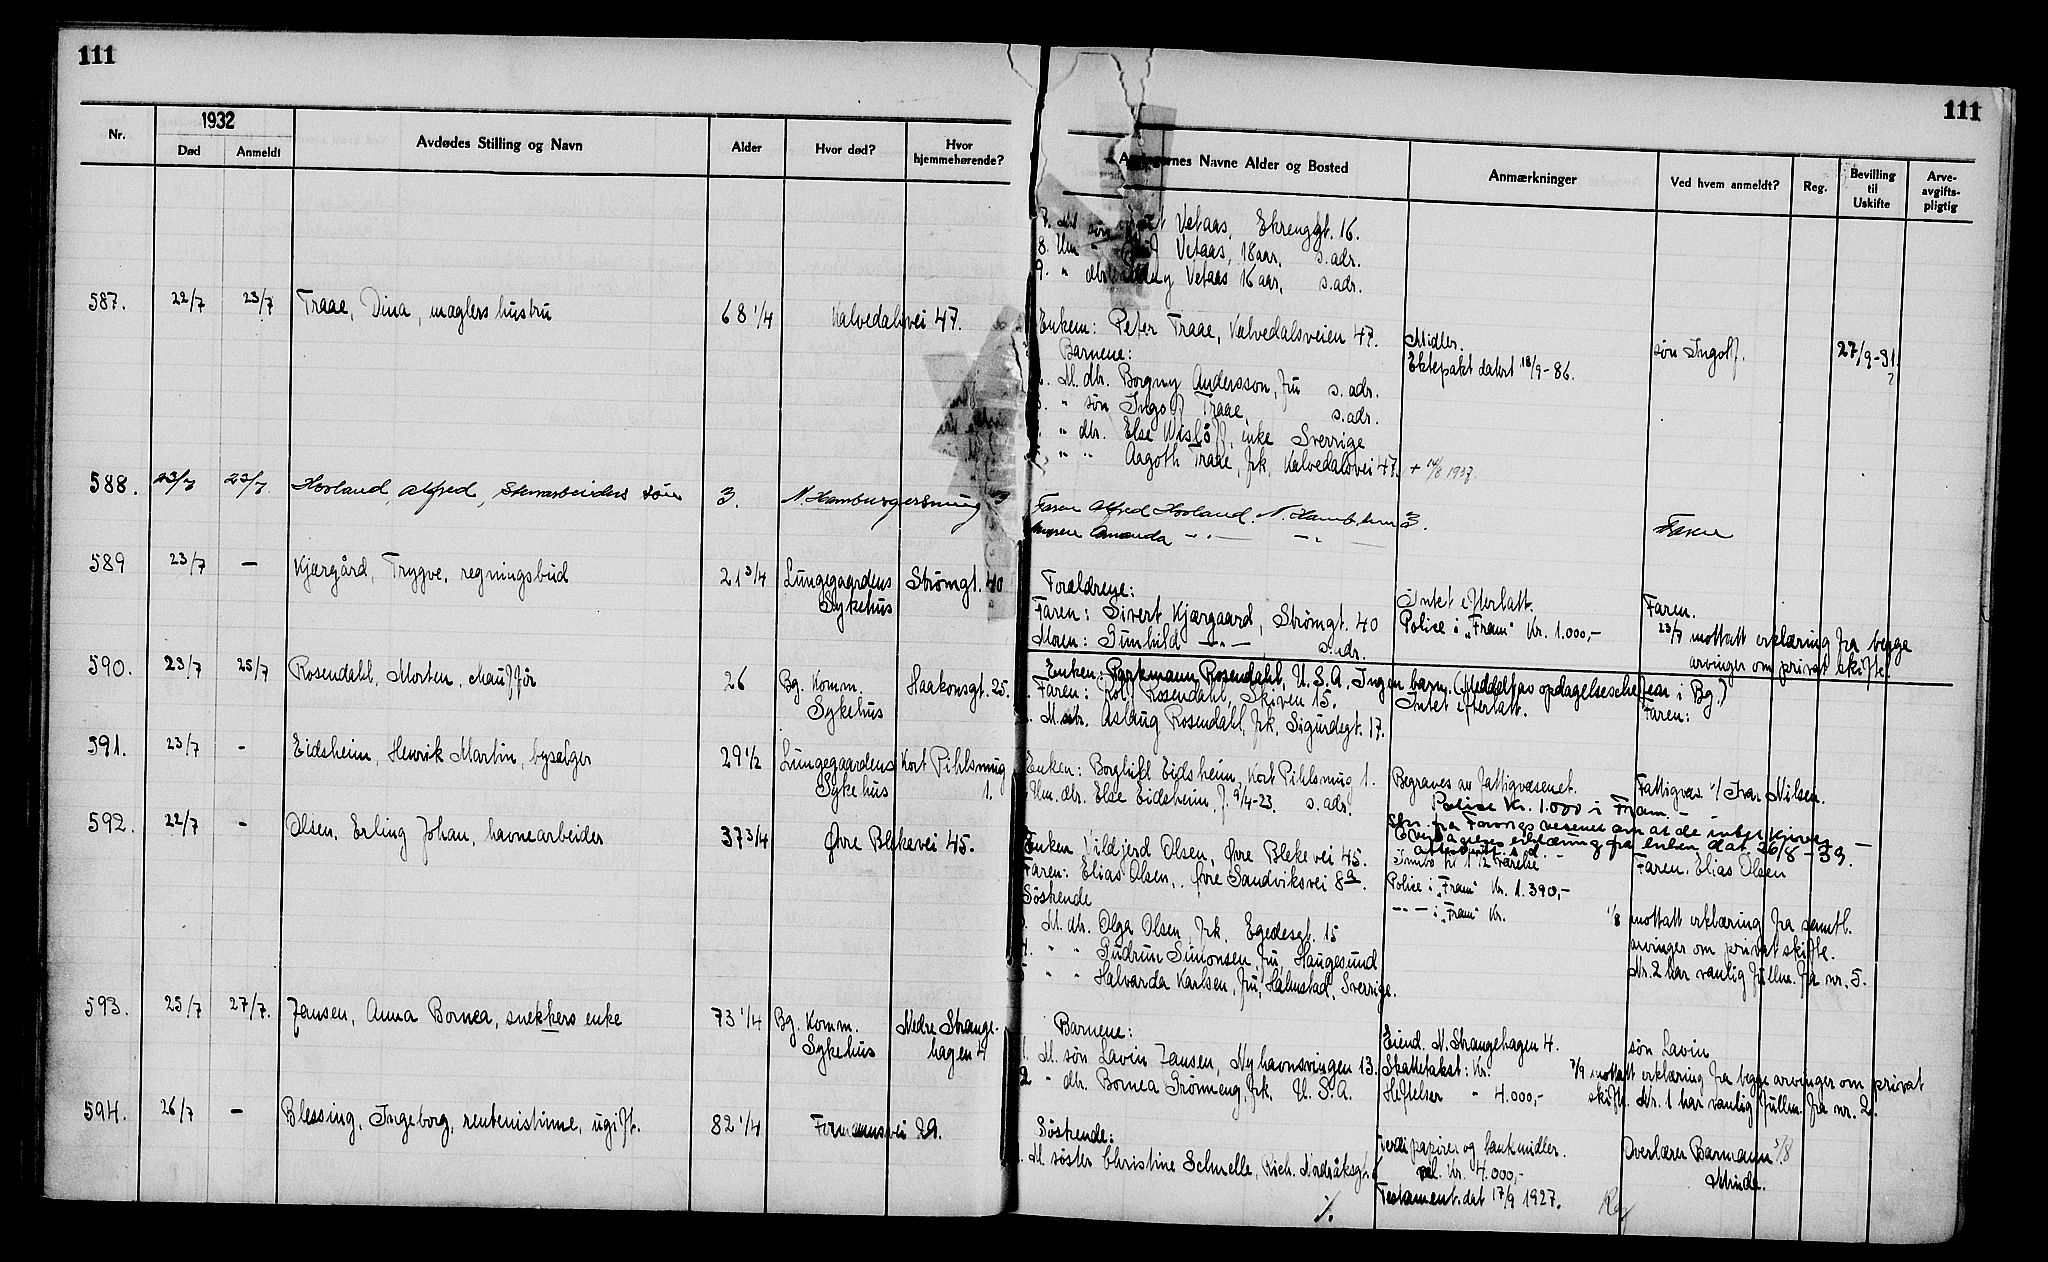 111
111
Nr.
1932
Død
Anmeldt
Avdødes Stilling og Navn
Alder
Hvor død?
Hvor hjemmehørende?
Navne Alder og Bosted
Anmærkninger
Ved hvem anmeldt?
Reg.
Bevilling til Uskifte
Arve-avgifts-pligtig
Vetaas, Ekrengt. 16.
8. Um " Vetaas, 18 aar, s. adr.
9. " Vetaas 16 aar, s. adr.
587. 22/7 23/7 Traae, Dina, mæglers hustru 68 1/4 Kalvedalsvei 47.
Enkem: Peter Traae, Kalvedalsveien 47.
Midler.
Ektepakt datert 18/9-86.
søn Ingolf.
27/9-31
?
Barnene:
M. dtr. Borgny Andersson, fru s. adr.
" søn Ingolf Traae, s. adr.
" dtr. Else Wisløff, enke Sverrige
" " Aagoth Traae, frk. Kalvedalsvei 47. + 14/8 1937.
588. 23/7 23/7. Hovland, Alfred, søn 3. N. Hamburgersmug 3
Faren Alfred Hovland. N. Hamb. 3.
Amanda
Faren
589 23/7 — Kjærgård, Trygve, regningsbud 21 3/4 Lungegaardens Sykehus Strømgt. 40
Forældrene:
Faren: Sivert Kjærgaard, Strømgt. 40
Moren: Gunhild —"— s. adr.
Intet efterlatt.
Polise i "Fram" Kr. 1.000,-
Faren.
23/7 mottatt erklæring fra begge
arvinger om privat skifte.
590. 23/7 25/7 Rosendahl, Morten, chauffør 26 Bg. Komm. Sykehus Haakonsgt. 25.
Enken: Rosendahl, U.S.A. Ingen barn. (Meddelt av opdagelseschefen i Bg.)
Faren: Rolf Rosendahl, Skiven 15.
Intet efterlatt.
Faren:
M. Aslaug Rosendahl, frk. Sigurdsgt. 17.
591. 23/7 - Eidsheim, Henrik Martin, bysælger 29 1/2 Lungegaardens Sykehus Kort Pihlsmug 1.
Enken: Borghild Eidsheim, Kort Pihlsmug 1.
Um. dtr. Else Eidsheim, f. 9/4-23. s. adr.
Begraves av fattigvæsenet.
Polise Kr. 1.000 i Fram. -
Fattigvæs. v/ Ivar Nilsen.
erklæring fra enken dat 26/8-39.
592. 22/7 - Olsen, Erling Johan, havnearbeider 37 3/4 Øvre Blekevei 45.
Enken Vildjerd Olsen, Øvre Blekevei 45.
Faren: Elias Olsen, Øvre Sandviksvei 8a.
Søskende
M. dtr. Olga Olsen, frk. Egedesgt. 15
4. " " Gudrun Simonsen, fru, Haugesund
5 " " Halvarda Karlsen, fru, Halmstad, Sverrige.
Innbo til 1 1/2 værelse
Police i "Fram" Kr. 1.390,-
-"- — i "Fram" Kr.
Faren. Elias Olsen
1/8 mottatt erklæring fra samtl.
arvinger om privat skifte.
Nr. 2 har vanlig fullm. fra nr. 5.
593. 25/7 27/7. Jansen, Anna Bornea, snekkers enke 73 1/4 Bg. Komm. Sykehus Nedre Strange-hagen 4
Barnene:
1. M. søn Lavin Jansen, Nyhavnsvingen 13.
2 " dtr. Bornea Grønneng, frk. U.S.A.
Eiend. N. Strangehagen 4.
Skattetakst: Kr.
Heftelser " 4.000,-
søn Lavin
7/9 mottatt erklæring fra begge arvinger om privat
skifte. Nr. 1 har vanlig fullm. fra nr. 2.
594. 26/7 - Blessing, Ingeborg, rentenistinne, ugift. 82 1/4 Formannsvei 29.
Søskende:
M. søster Christine Schnelle, Rich. Nordråksgt.
Verdipapirer og bankmidler.
Kr. 4.000,-
Testament. dat 17/9 1927.
Overlærer Barmann 5/8
Minde.
Reg
%